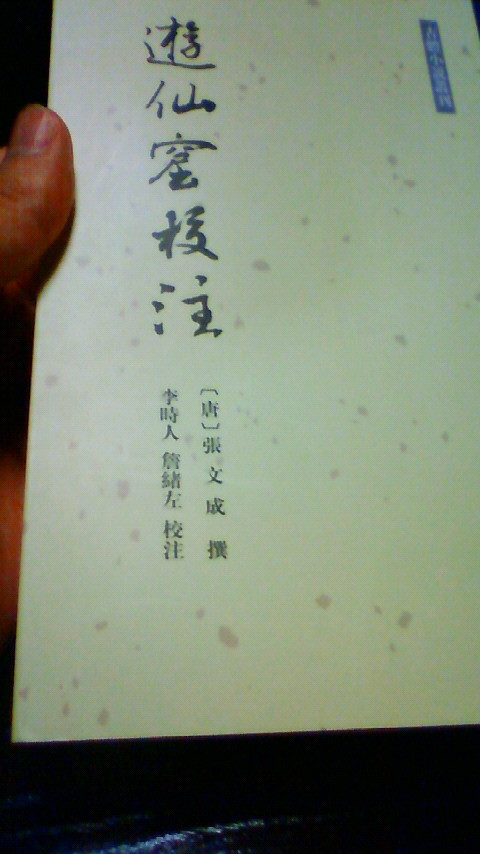 古體小説叢刊
遊仙窟校注
〔唐〕張文成 撰
李時人 詹緒左 校注